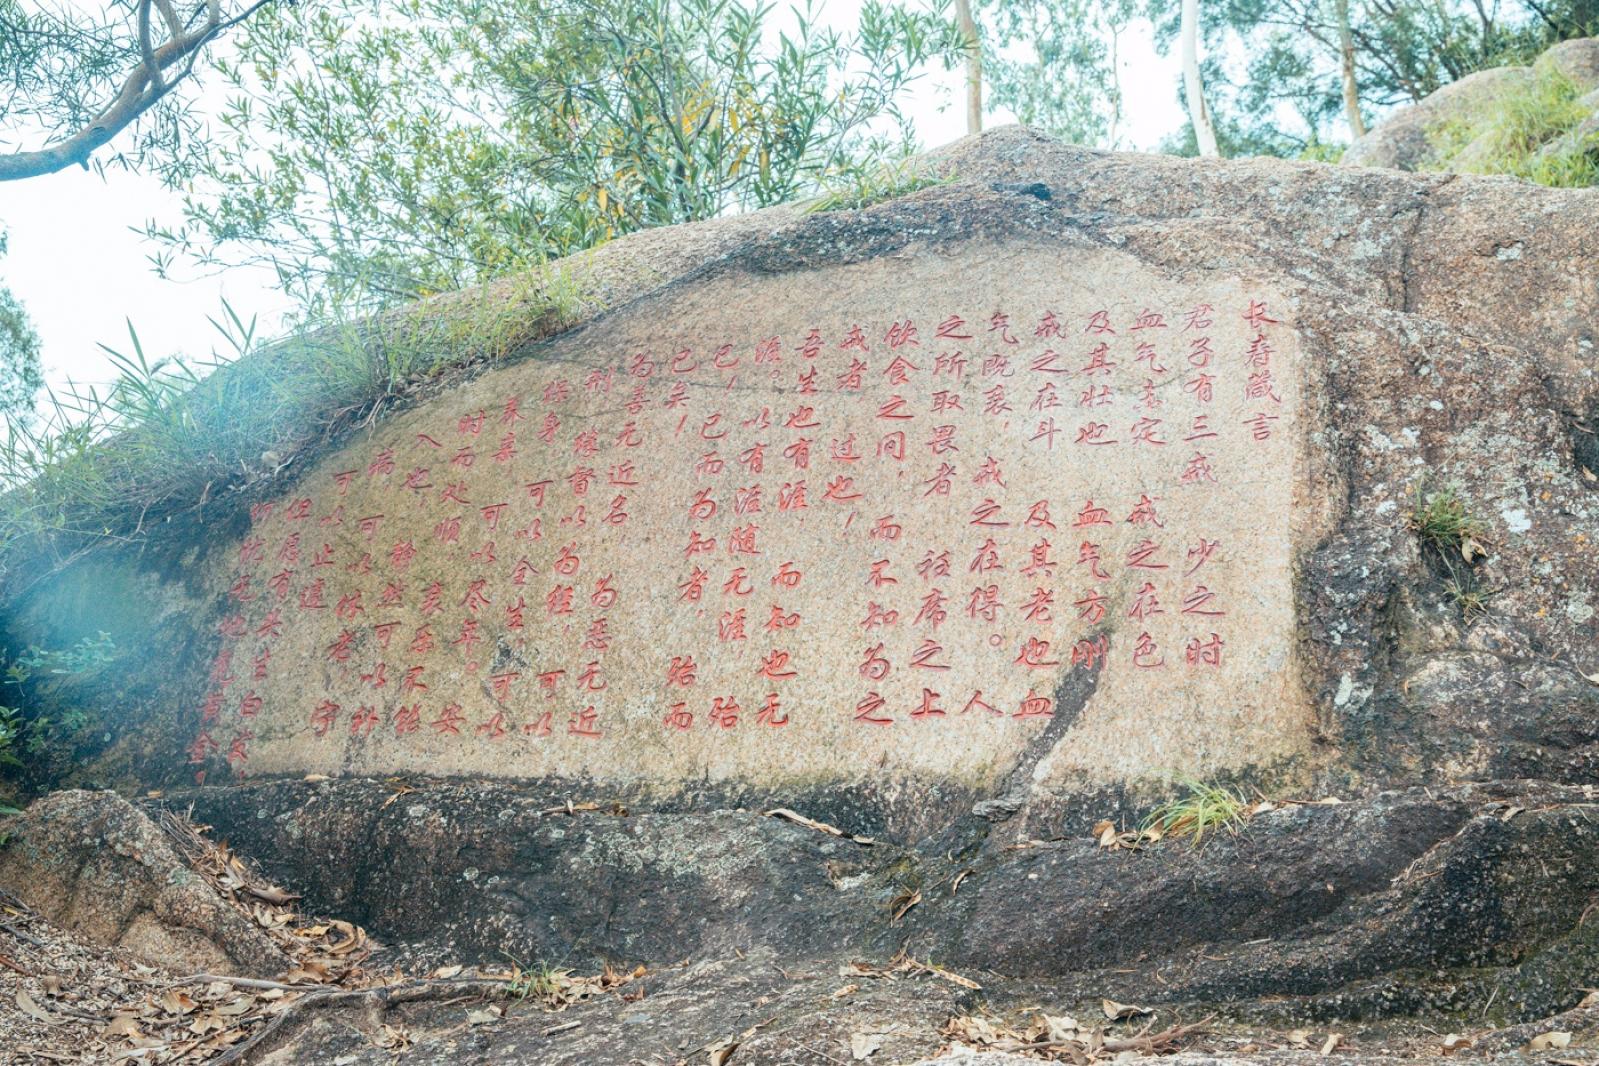 长春箴言
君子有三戒 少之时
血气未定 戒之在色
及其壮也 血气方刚
戒之在斗 及其老也血
气既衰，戒之在得。人
之所取畏者 衽席之上
饮食之间，而不知为之
戒者 过也！
吾生也有涯，而知也无
涯。以有涯随无涯，殆
已！已而为知者，殆而
已矣！
为善无近名，为恶无近
刑 缘督以为经，可以
保身 可以全生，可以
养亲 可以尽年。安
时而处顺 哀乐不能
入也，静然可以补
病，可以休老 宁
可以止遽
但愿有头生白发，
何忧无地觅黄金！